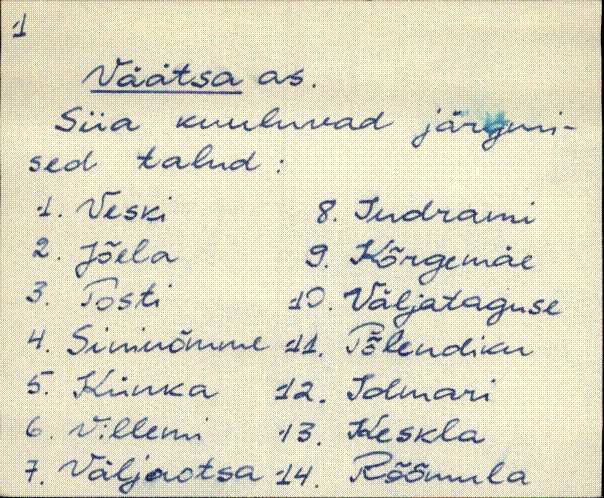 1
Väätsa as.
Siia kuuluvad järgmi-
sed talud:
1. Veski 8. Indrami
2. Jõela 9. Kõrgemäe
3. Posti 10. Väljataguse
4. Sininõmme 11. Põlendiku
5. Künka 12. Tolmari
6. Villemi 13. Keskla
7. Väljaotsa 14. Rõõmula